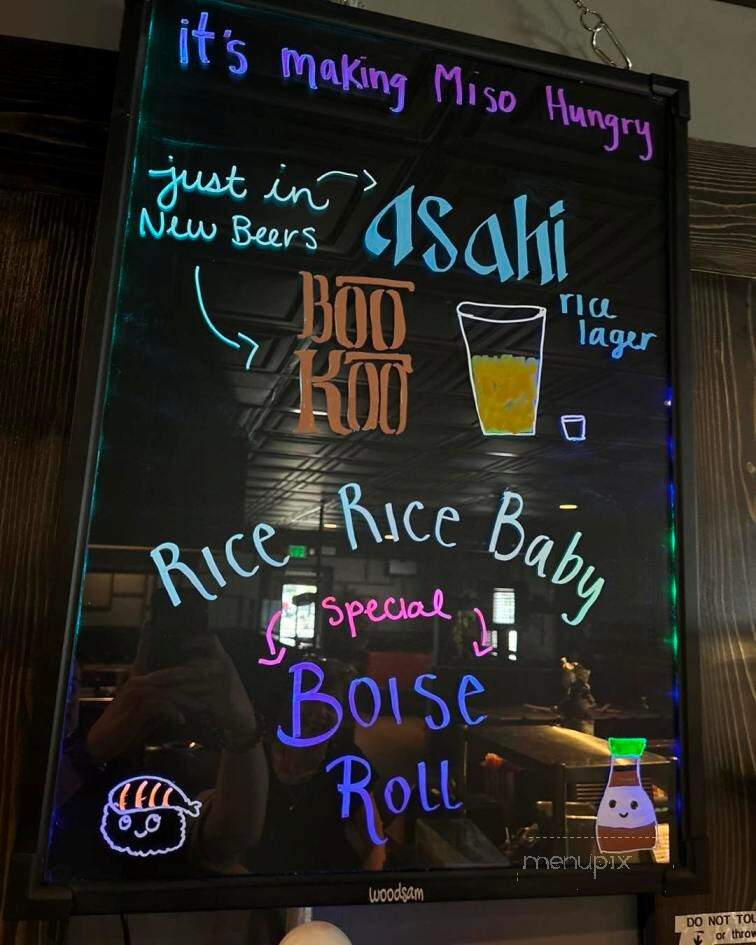 it's making Miso Hungry
just in
New Beers
asahi
rice
lager
BOO
KOO
Rice Rice Baby
special
Boise
Roll
menupix
woodsam
DO NOT
or